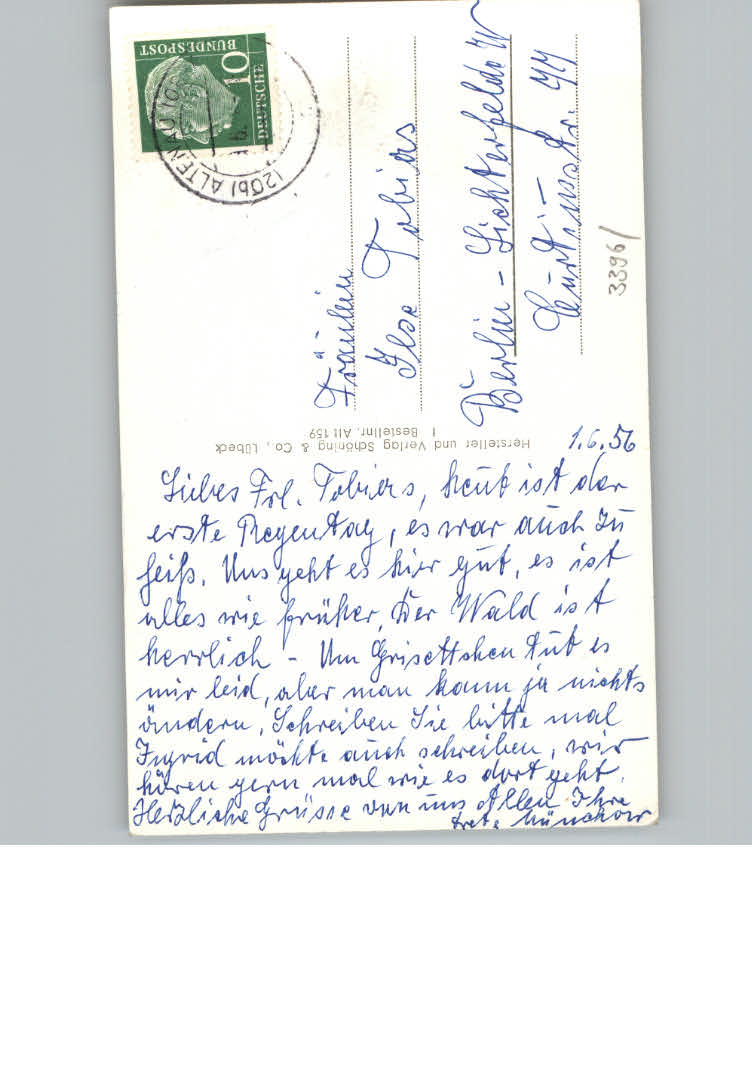 1.6.56
Liebes Frl. Tobias, heut ist der
erste Regentag, es war auch zu
heiß. Uns geht es hier gut, es ist
alles wie früher, Der Wald ist
herrlich - Um Grisettchen tut es
mir leid, aber man kann ja nichts
ändern, Schreiben Sie bitte mal
Ingrid möchte auch schreiben, wir
hören gern mal wie es dort geht.
Herzliche Grüsse von uns Allen Ihre
Münchow
Fräulein
Ilse Tobias
Berlin - Lichterfelde W
Curtiusstr. 44
3396/
Hersteller und Verlag Schöning & Co., Lübeck
Bestellnr. Alt 159
DEUTSCHE
BUNDESPOST
10
(20b) ALTENAU